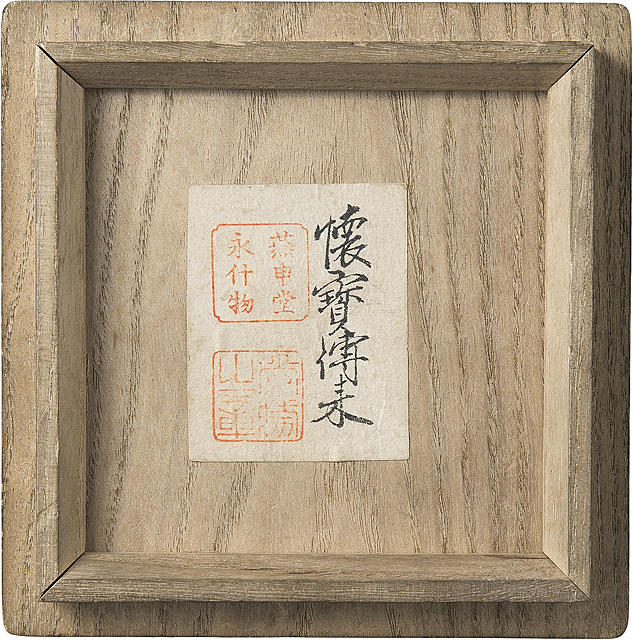 懷寶傳来
燕申堂
永什物